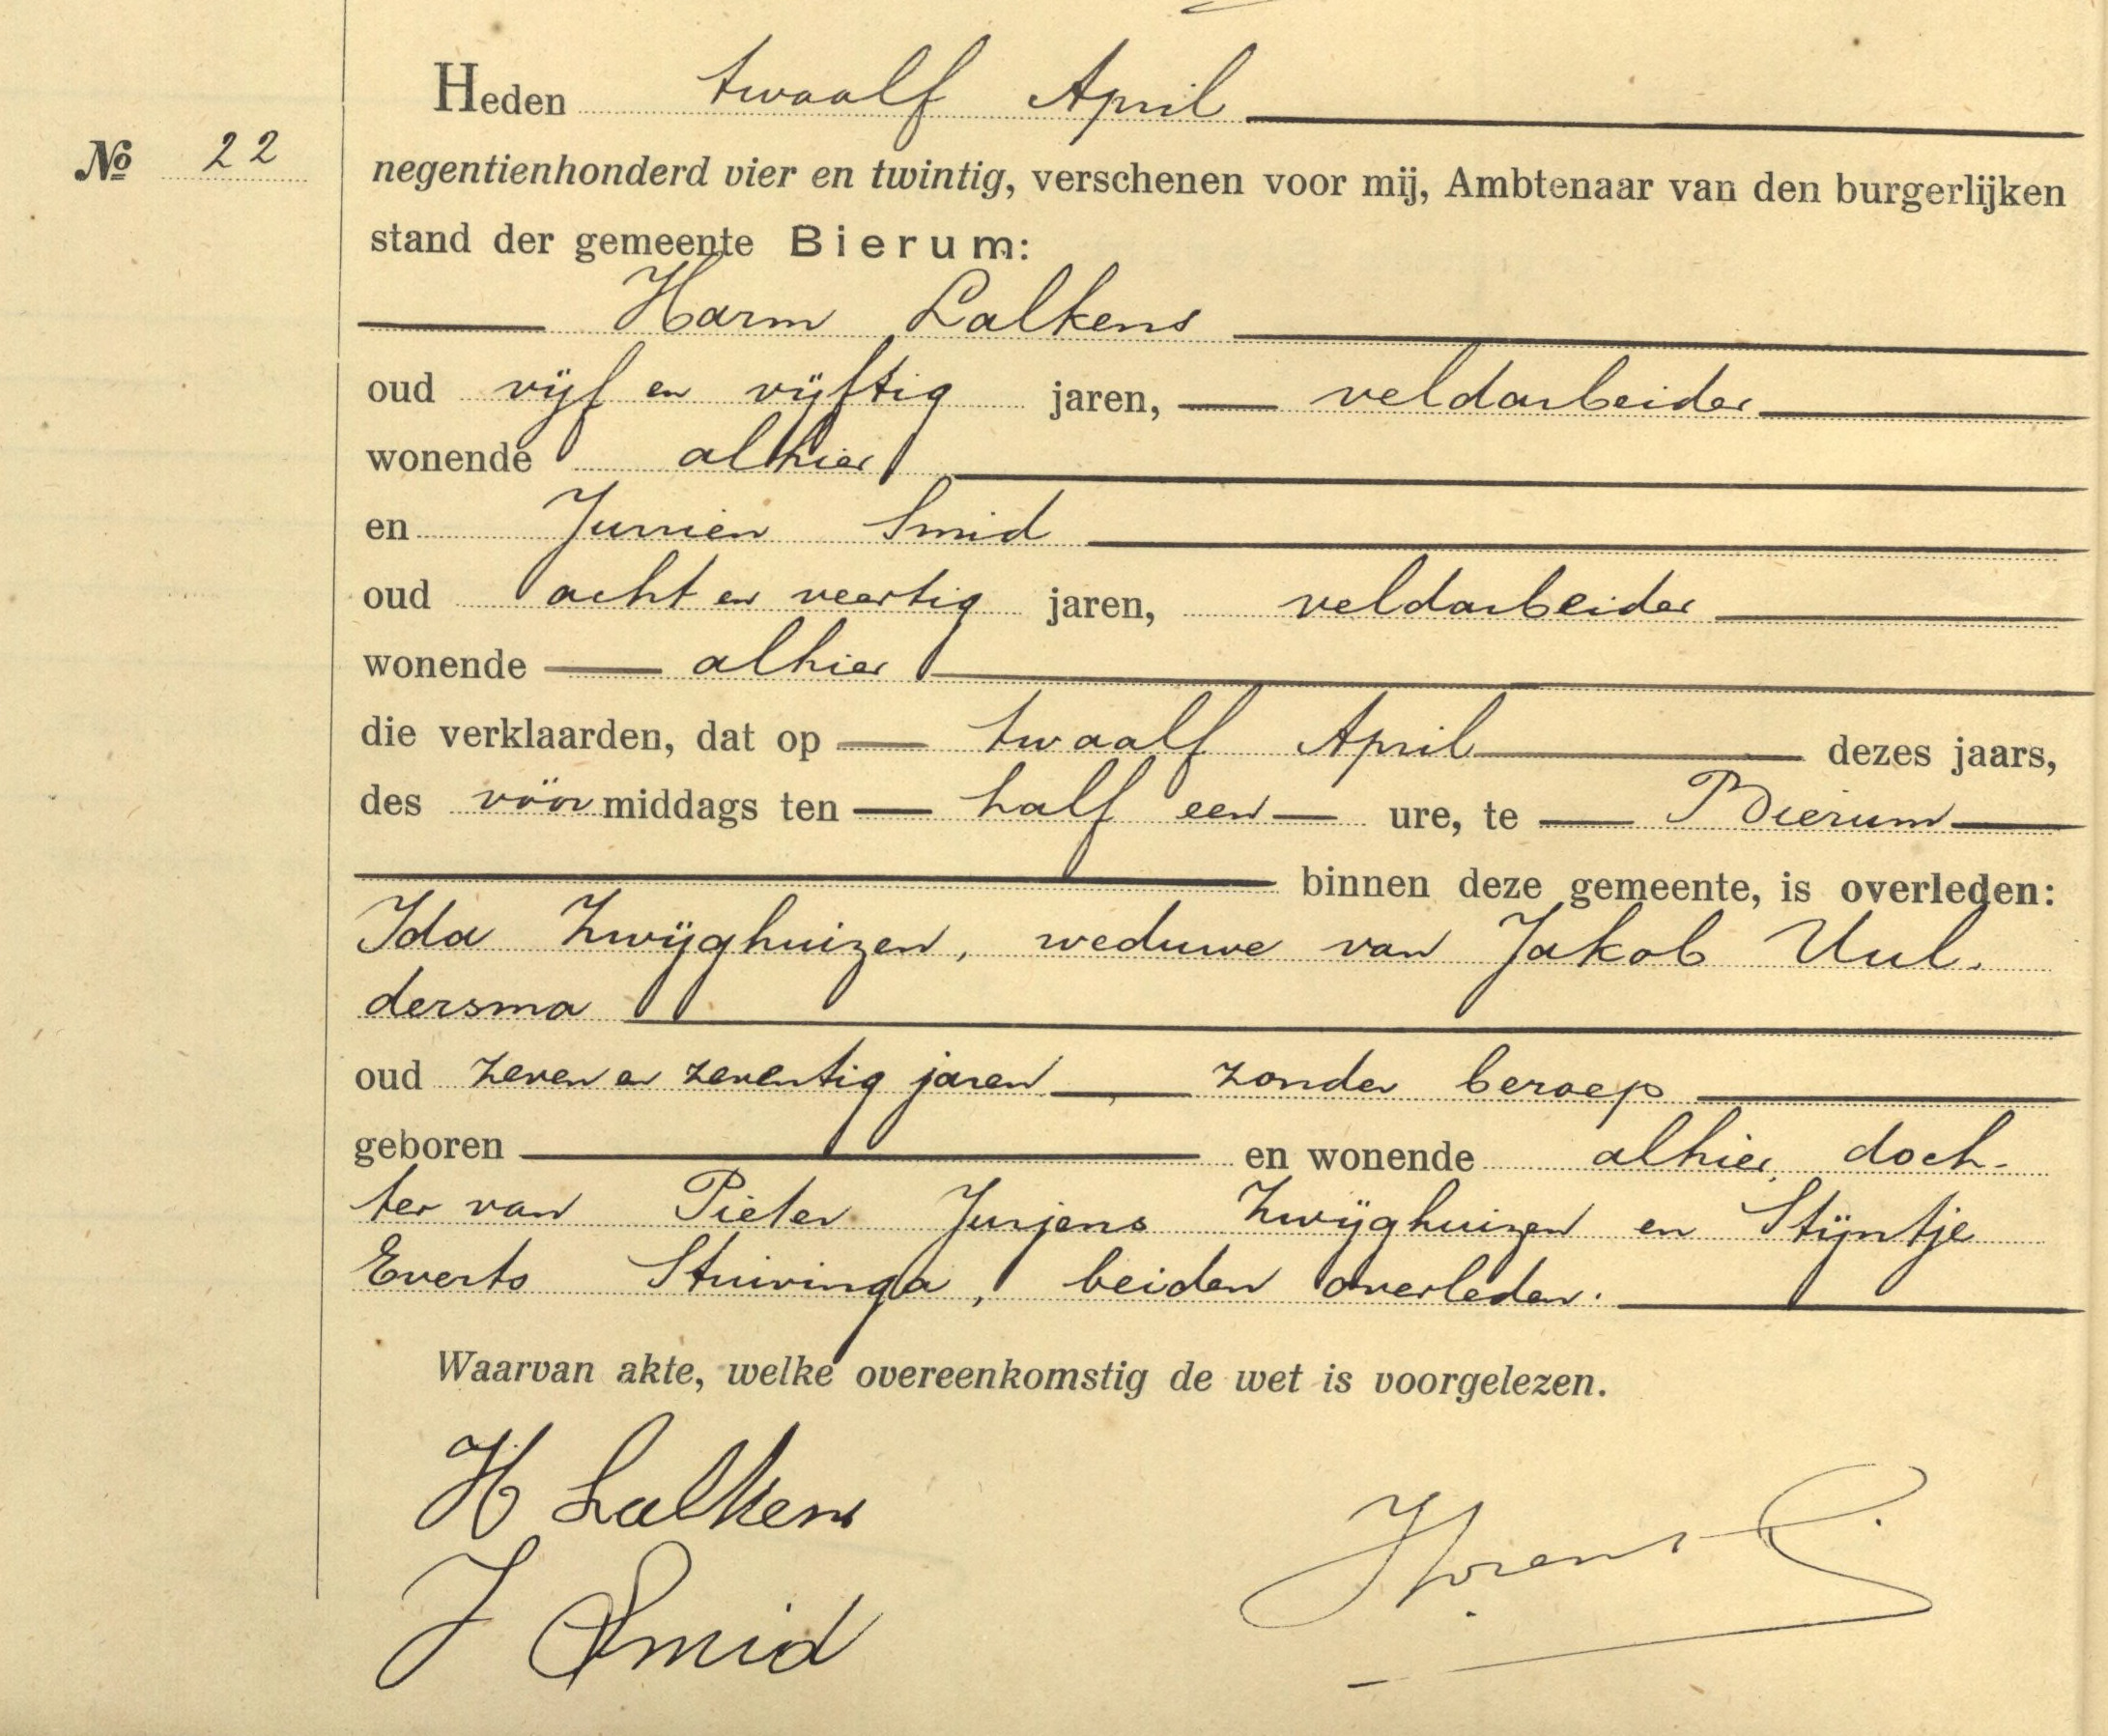 Heden twaalf April
№ 22
negentienhonderd vier en twintig, verschenen voor mij, Ambtenaar van den burgerlijken
stand der gemeente Bierum:
Harm Lalkens
oud vijf en vijftig jaren, veldarbeider
wonende alhier
en Jurrien Smid
oud acht en veertig jaren, veldarbeider
wonende alhier
die verklaarden, dat op twaalf April dezes jaars,
des vóórmiddags ten half een ure, te Bierum
binnen deze gemeente, is overleden:
Ida Zwijghuizen, weduwe van Jakob Uul-
dersma
oud zeven en zeventig jaren zonder beroep
geboren en wonende alhier, doch-
ter van Pieter Jurjens Zwijghuizen en Stijntje
Everts Stuivinga, beiden overleden.
Waarvan akte, welke overeenkomstig de wet is voorgelezen.
H Lalkens
J Smid